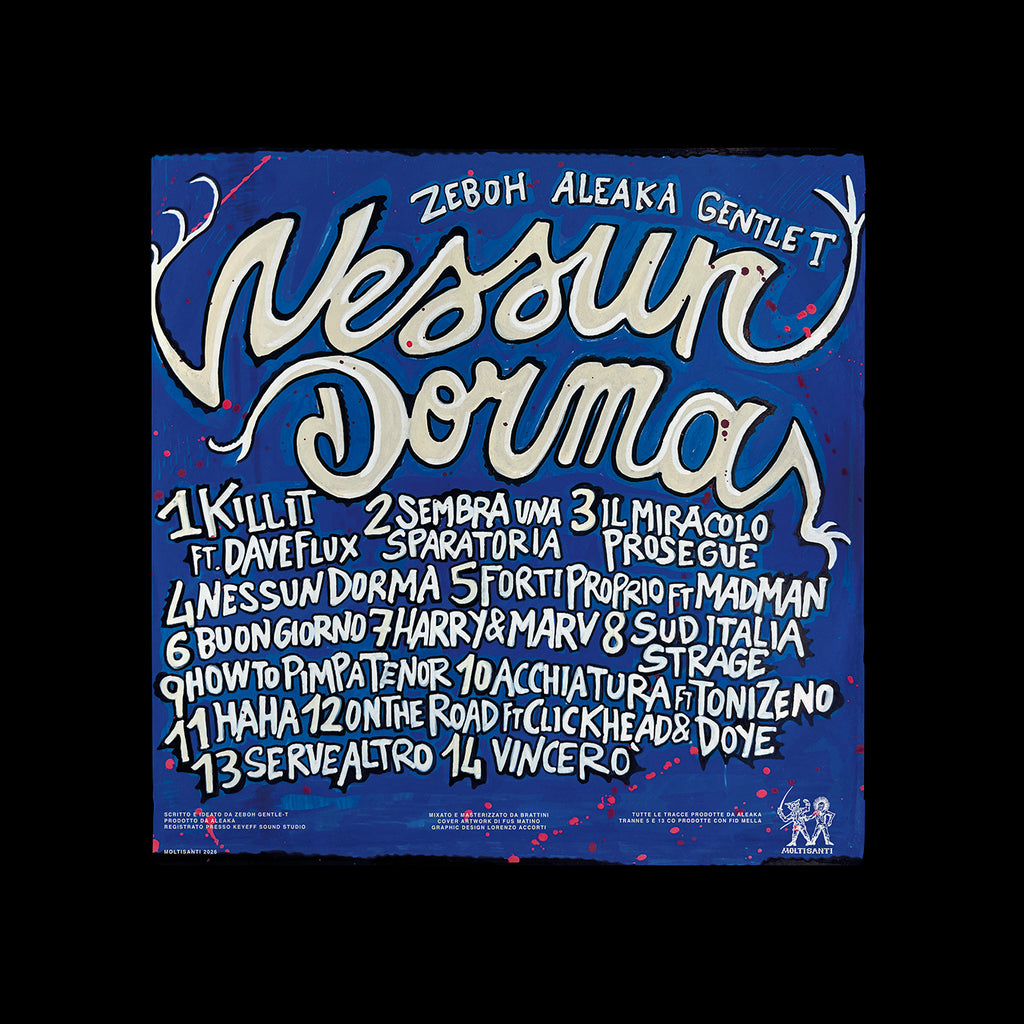 ZEBOH ALEAKA GENTLE T
Nessun
Dorma
1 KILLIT 2 SEMBRA UNA 3 IL MIRACOLO
FT. DAVEFLUX SPARATORIA PROSEGUE
4 NESSUN DORMA 5 FORTI PROPRIO FT MADMAN
6 BUONGIORNO 7 HARRY & MARV 8 SUD ITALIA
STRAGE
9 HOW TO PIMP A TENOR 10 ACCHIATURA FT TONIZENO
11 HAHA 12 ON THE ROAD FT CLICKHEAD & DOYE
13 SERVE ALTRO 14 VINCERÒ
SCRITTO E IDEATO DA ZEBOH GENTLE-T
PRODOTTO DA ALEAKA
REGISTRATO PRESSO KEYEFF SOUND STUDIO
MIXATO E MASTERIZZATO DA BRATTINI
COVER ARTWORK DI FUS MATINO
GRAPHIC DESIGN LORENZO ACCORTI
TUTTE LE TRACCE PRODOTTE DA ALEAKA
TRANNE 5 E 13 CO PRODOTTE CON FID MELLA
MOLTISANTI 2026
MOLTISANTI